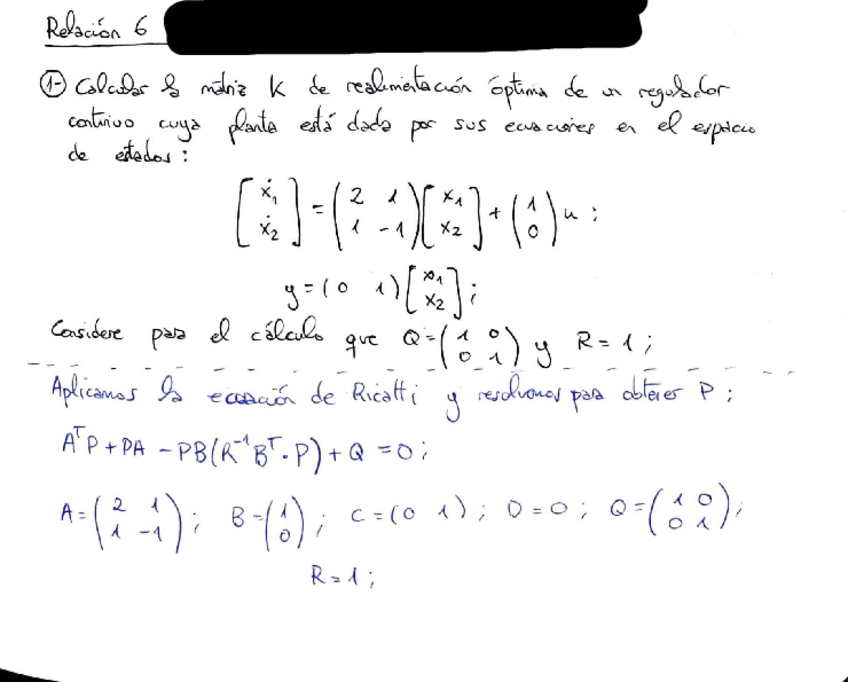 Relación 6
1- Calcular la matriz K de realimentación óptima de un regulador
continuo cuya planta está dada por sus ecuaciones en el espacio
de estados:
[ẋ1 ẋ2] = (2 1 1 -1) [x1 x2] + (1 0) u ;
y = (0 1) [x1 x2] ;
Considere para el cálculo que Q = (1 0 0 1) y R = 1 ;
Aplicamos la ecuación de Ricatti y resolvemos para obtener P ;
AᵀP + PA - PB(R⁻¹Bᵀ·P) + Q = 0 ;
A = (2 1 1 -1) ; B = (1 0) ; C = (0 1) ; D = 0 ; Q = (1 0 0 1) ;
R = 1 ;